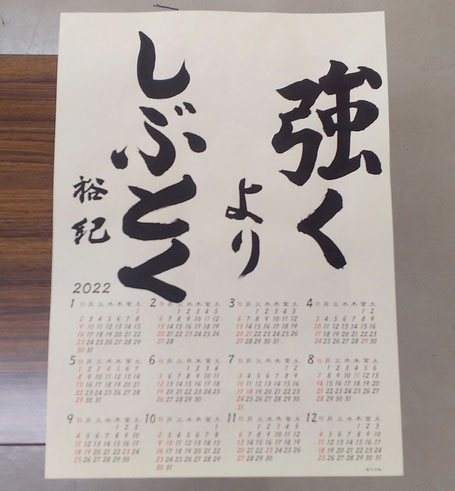 強く
より
しぶとく
裕紀
2022
1 日 月 火 水 木 金 土
1
2 3 4 5 6 7 8
9 10 11 12 13 14 15
16 17 18 19 20 21 22
23 24 25 26 27 28 29
30 31
2 日 月 火 水 木 金 土
1 2 3 4 5
6 7 8 9 10 11 12
13 14 15 16 17 18 19
20 21 22 23 24 25 26
27 28
3 日 月 火 水 木 金 土
1 2 3 4 5
6 7 8 9 10 11 12
13 14 15 16 17 18 19
20 21 22 23 24 25 26
27 28 29 30 31
4 日 月 火 水 木 金 土
1 2
3 4 5 6 7 8 9
10 11 12 13 14 15 16
17 18 19 20 21 22 23
24 25 26 27 28 29 30
5 日 月 火 水 木 金 土
1 2 3 4 5 6 7
8 9 10 11 12 13 14
15 16 17 18 19 20 21
22 23 24 25 26 27 28
29 30 31
6 日 月 火 水 木 金 土
1 2 3 4
5 6 7 8 9 10 11
12 13 14 15 16 17 18
19 20 21 22 23 24 25
26 27 28 29 30
7 日 月 火 水 木 金 土
1 2
3 4 5 6 7 8 9
10 11 12 13 14 15 16
17 18 19 20 21 22 23
24 25 26 27 28 29 30
31
8 日 月 火 水 木 金 土
1 2 3 4 5 6
7 8 9 10 11 12 13
14 15 16 17 18 19 20
21 22 23 24 25 26 27
28 29 30 31
9 日 月 火 水 木 金 土
1 2 3
4 5 6 7 8 9 10
11 12 13 14 15 16 17
18 19 20 21 22 23 24
25 26 27 28 29 30
10 日 月 火 水 木 金 土
1
2 3 4 5 6 7 8
9 10 11 12 13 14 15
16 17 18 19 20 21 22
23 24 25 26 27 28 29
30 31
11 日 月 火 水 木 金 土
1 2 3 4 5
6 7 8 9 10 11 12
13 14 15 16 17 18 19
20 21 22 23 24 25 26
27 28 29 30
12 日 月 火 水 木 金 土
1 2 3
4 5 6 7 8 9 10
11 12 13 14 15 16 17
18 19 20 21 22 23 24
25 26 27 28 29 30 31